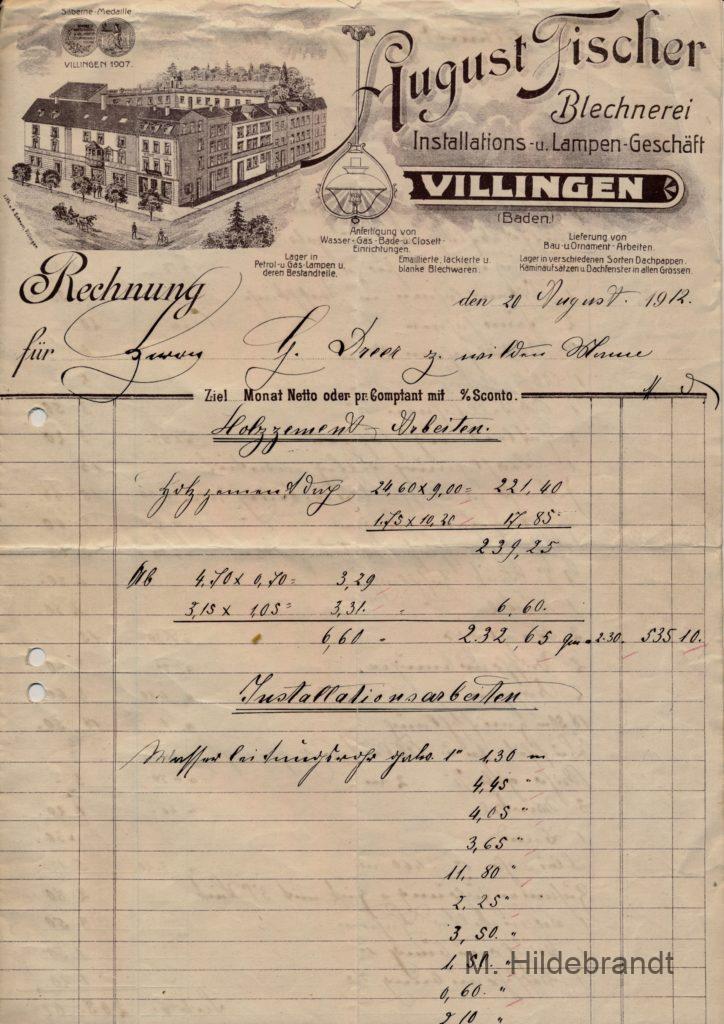 Silberne-Medaille
VILLINGEN 1907.
August Fischer
Blechnerei
Installations-u. Lampen-Geschäft
VILLINGEN
(Baden.)
Anfertigung von
Wasser-Gas-Bade-u. Closett-
Einrichtungen.
Lieferung von
Bau-u Ornament-Arbeiten.
Lager in
Petrol-u. Gas-Lampen u.
deren Bestandteile.
Emaillierte, lackierte u.
blanke Blechwaren.
Lager in verschiedenen Sorten Dachpappen.
Kaminaufsätzen u Dachfenster in allen Grössen.
Rechnung
den 20 August. 1912.
für Herrn G. Dreer z. wilden Mann
Ziel Monat Netto oder pr. Comptant mit % Sconto.
M
Holzzement-Arbeiten.
Holzzementdach 24,60 x 9,00 = 221,40
1.75 x 10,20 17,85
239,25
Ab 4.70 x 0,70 = 3,29
3,15 x 1,05 = 3,31. " 6,60.
6,60 " 232,65 qm = 2.30. 535 10.
Installationsarbeiten
Wasserleitungsrohr galv. 1" 1,30 m
4,45 "
4,05 "
3,65 "
11,80 "
2,25 "
3,50. "
1,50. "
M. Hildebrandt
0,60. "
2,10 "